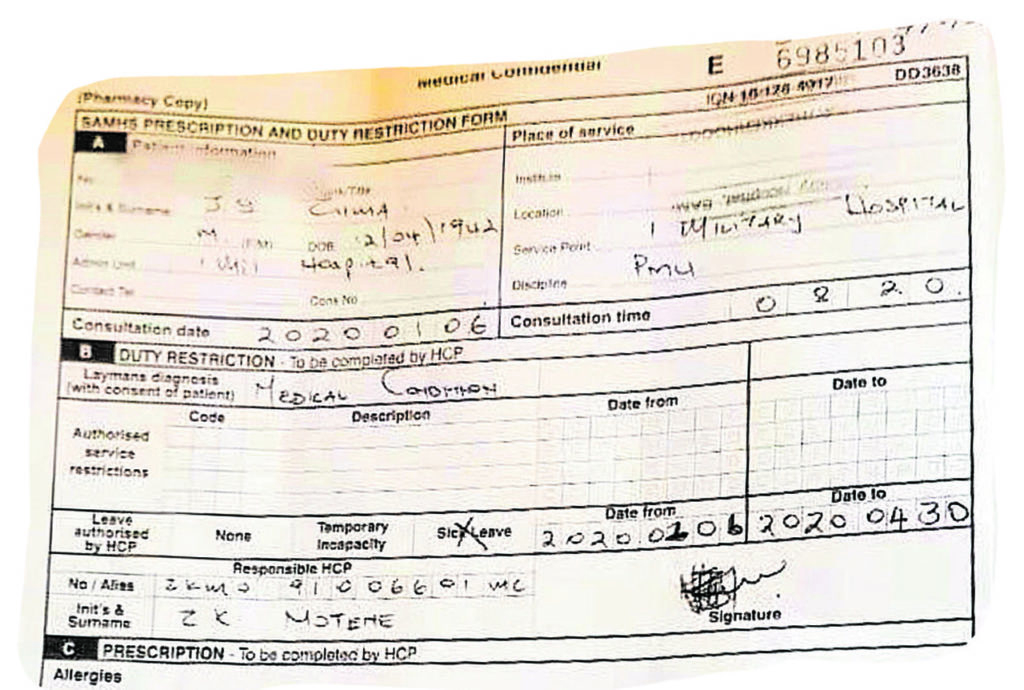 Medical Confidential
E 6985103
(Pharmacy Copy)
DD3638
SAMHS PRESCRIPTION AND DUTY RESTRICTION FORM
Place of service
A Patient information
No
Institute
Init's & Surname J.G ZUMA
Location 1 MILITARY HOSPITAL
Gender M. (F/M) DOB 12/04/1942
Service Point
Admin Unit 1 Mil Hospital.
Discipline PMU
Contact Tel Cons No
Consultation date 20200106 Consultation time 0820.
B DUTY RESTRICTION - To be completed by HCP
Laymans diagnosis
(with consent of patient) MEDICAL CONDITION
Code Description Date from Date to
Authorised
service
restrictions
Date from Date to
Leave
authorised
by HCP
None Temporary
Incapacity Sick Leave 2020 0106 2020 0430
Responsible HCP
No / Alias 91006691 MC
Init's &
Surname Z K MOTENE
Signature
C PRESCRIPTION - To be completed by HCP
Allergies